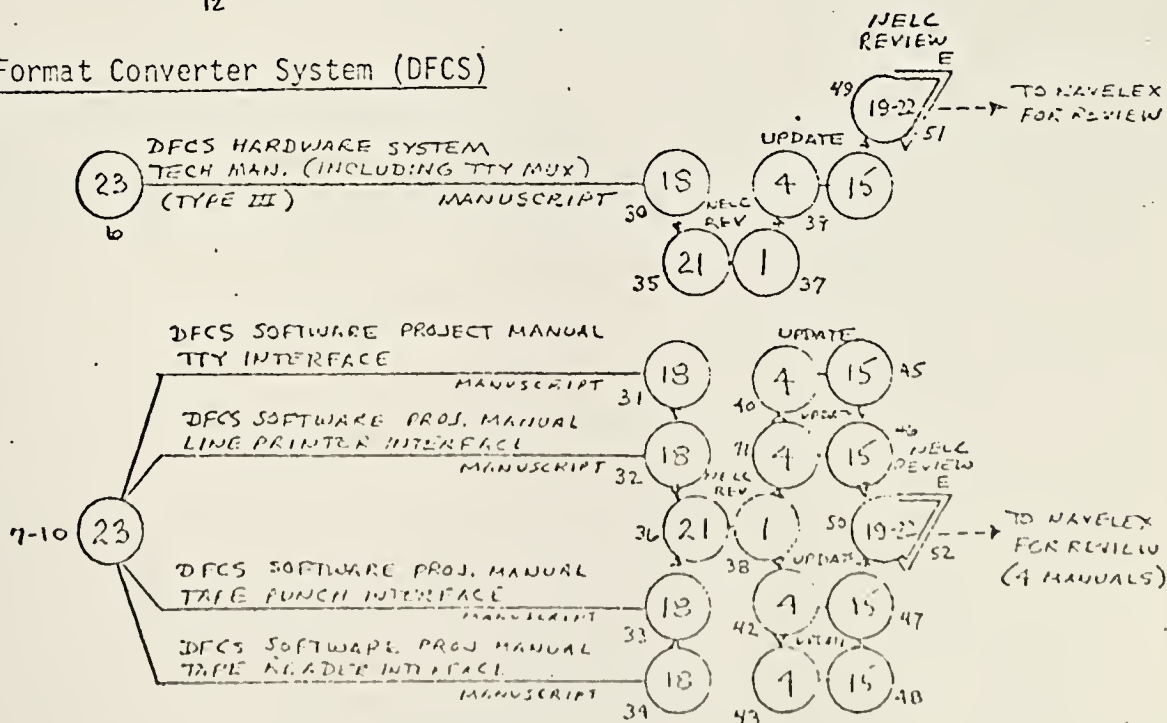 12
Format Converter System (DFCS)
NELC
REVIEW
E
49
19-22
51
TO NAVELEX
FOR REVIEW
23
6
DFCS HARDWARE SYSTEM
TECH MAN. (INCLUDING TTY MUX)
(TYPE III)
MANUSCRIPT
18
30
UPDATE
4
39
15
NELC
REV
35
21
1
37
DFCS SOFTWARE PROJECT MANUAL
TTY INTERFACE
MANUSCRIPT
18
31
UPDATE
4
40
15
45
DFCS SOFTWARE PROJ. MANUAL
LINE PRINTER INTERFACE
MANUSCRIPT
18
32
UPDATE
41
4
15
46
NELC
REVIEW
E
7-10
23
NELC
REV
36
21
1
38
50
19-22
52
TO NAVELEX
FOR REVIEW
(4 MANUALS)
DFCS SOFTWARE PROJ. MANUAL
TAPE PUNCH INTERFACE
MANUSCRIPT
18
33
UPDATE
4
42
15
47
DFCS SOFTWARE PROJ MANUAL
TAPE READER INTERFACE
MANUSCRIPT
18
34
UPDATE
4
43
15
48